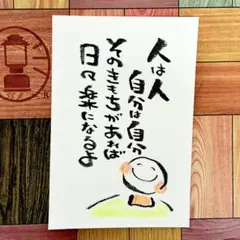 人は人
自分は自分
そのきもちがあれば
日々楽になるよ